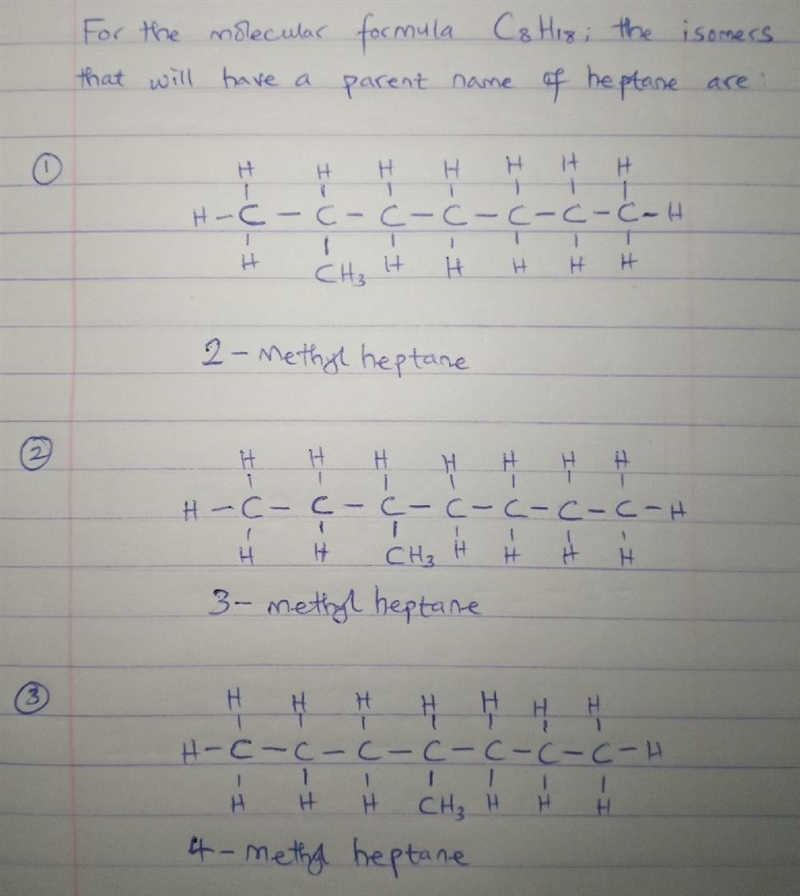 For the molecular formula C8H18; the isomers
that will have a parent name of heptane are:
①
H H H H H H H
H-C-C-C-C-C-C-C-H
H CH3 H H H H H
2-Methyl heptane
②
H H H H H H H
H-C-C-C-C-C-C-C-H
H H CH3 H H H H
3-methyl heptane
③
H H H H H H H
H-C-C-C-C-C-C-C-H
H H H CH3 H H H
4-methyl heptane